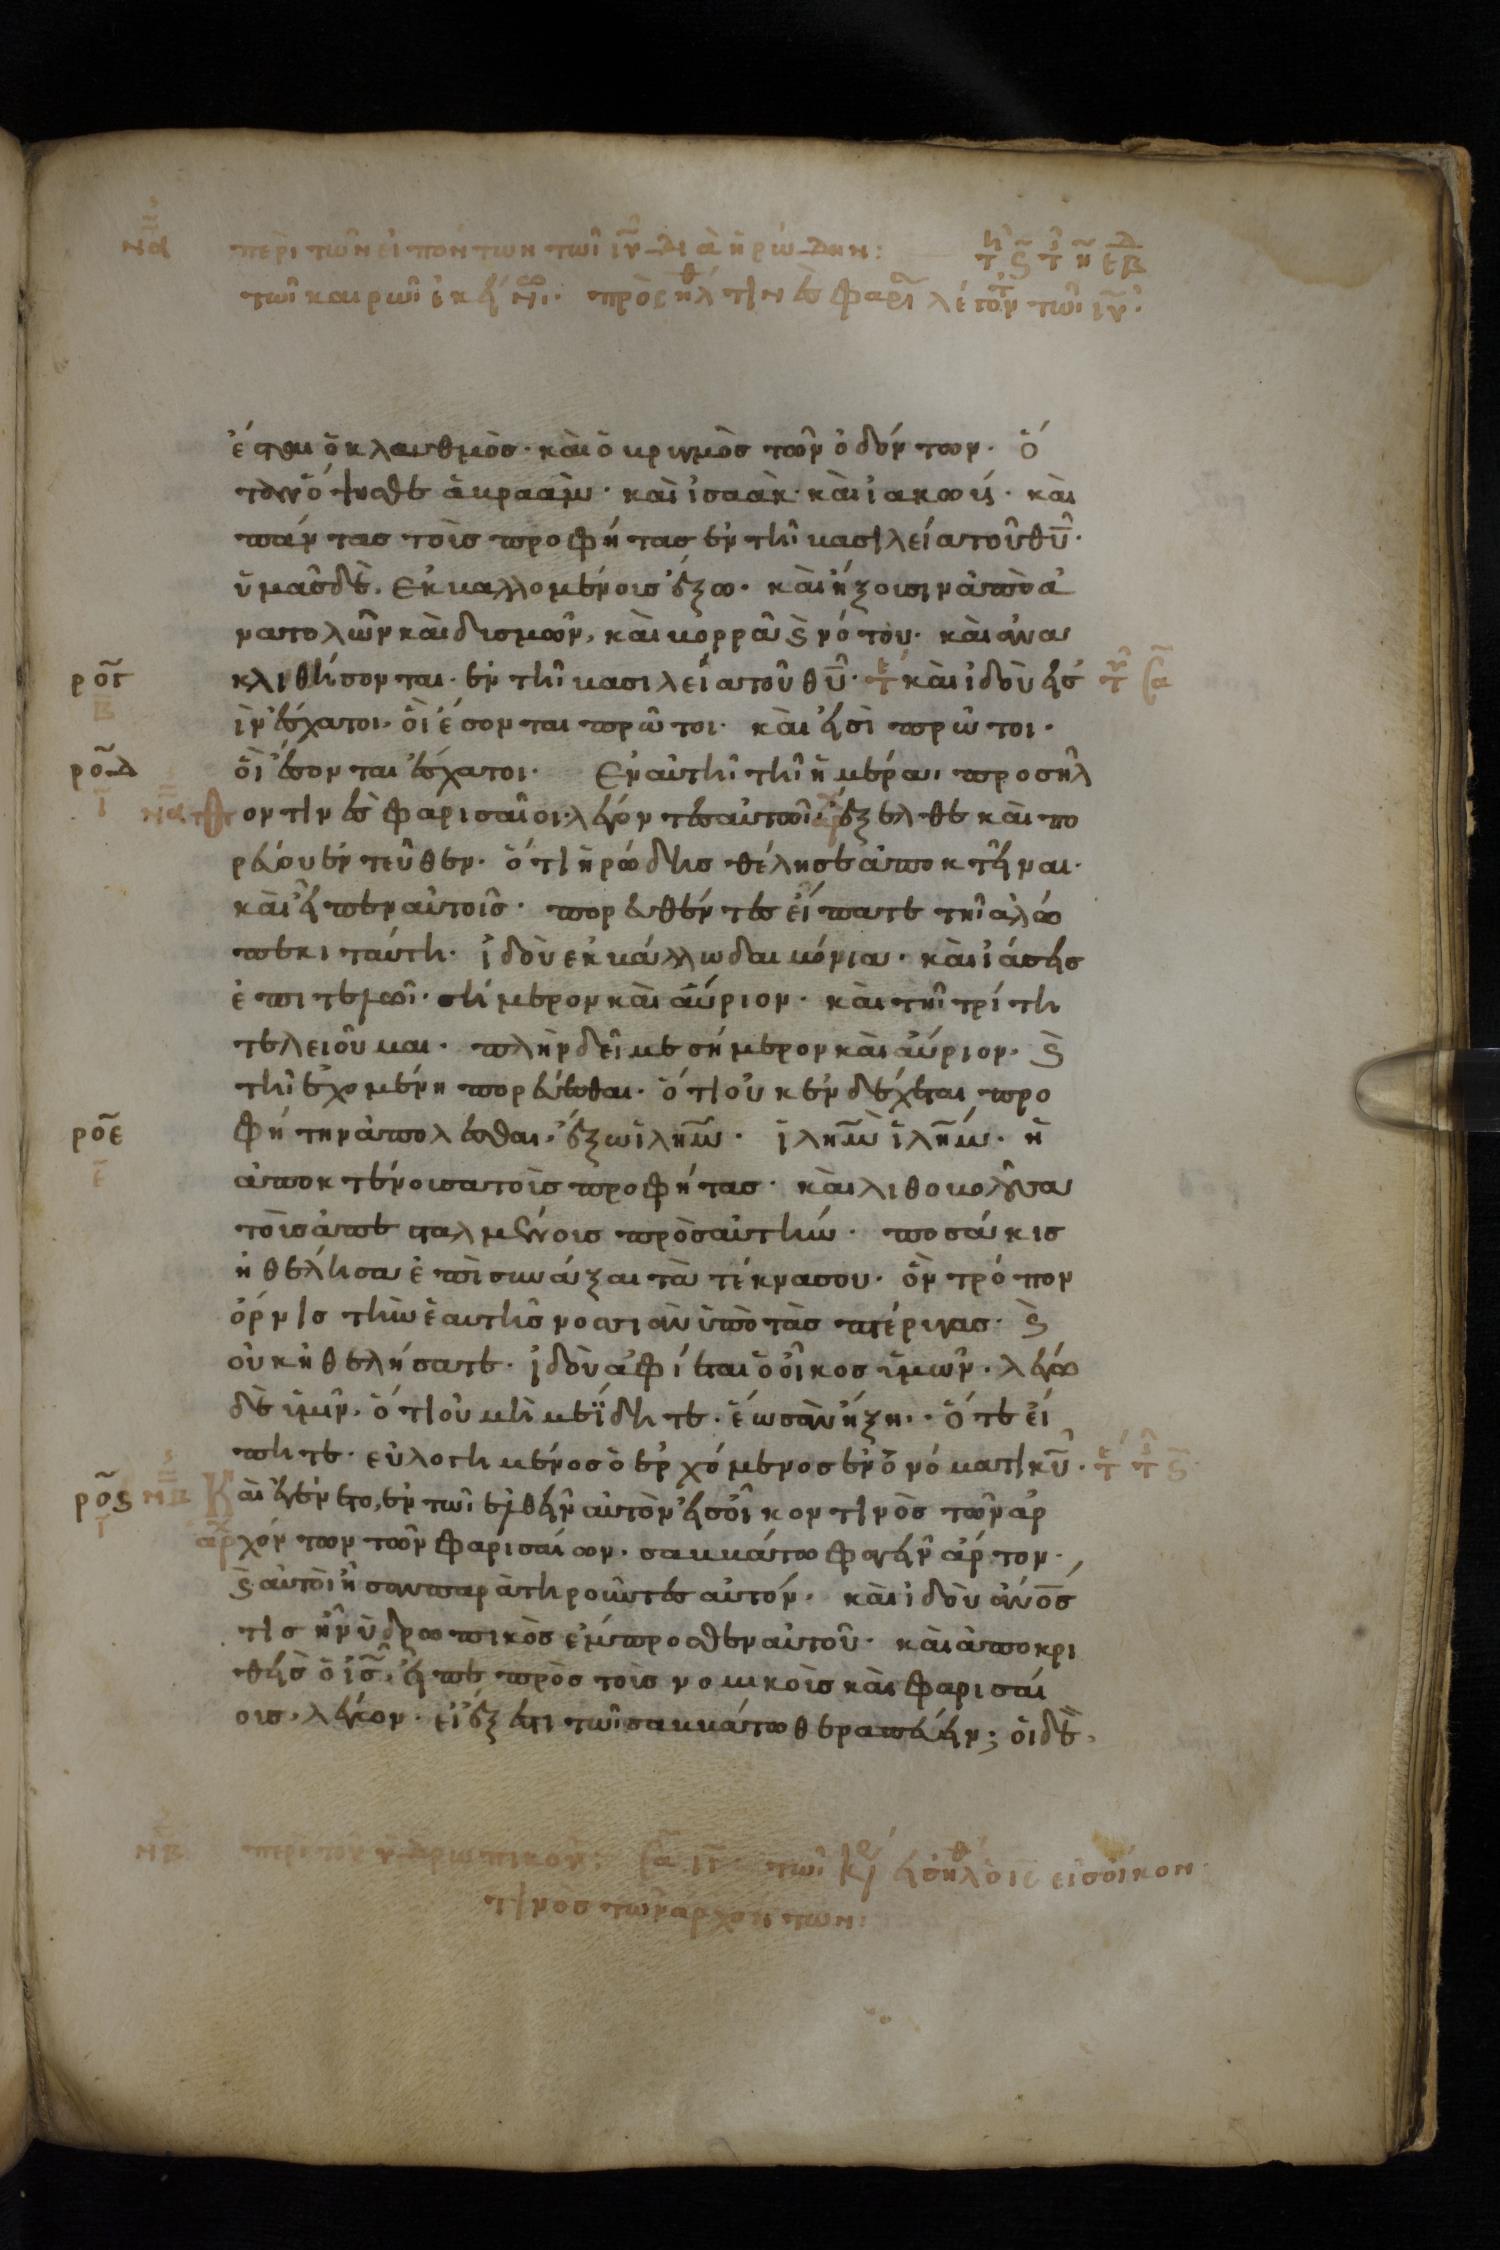 να περὶ τῶν εἰπόντων τῶι ιυ διὰ ἡρώδην:
τῶι καιρῶι ἐκεί προσηλθ τινὲς φαρι λέγον τῶι ιυ.
ἔσται ὁ κλαυθμὸς· καὶ ὁ βρυγμὸς τῶν ὀδόντων. ὅ
ταν ὄψησθε ἀβραὰμ· καὶ ἰσαὰκ· καὶ ἰακώβ· καὶ
πάντας τοὺς προφήτας ἐν τῆ βασιλεία τοῦ θυ·
ὑμᾶς δὲ, ἐκβαλλομένους ἔξω. καὶ ἥξουσιν ἀπὸ ἀ
νατολῶν καὶ δυσμῶν, καὶ βορρᾶ ϗ νότου. καὶ ἀνα
ρογ κλιθήσονται. ἐν τῆ βασιλεία τοῦ θυ· τε καὶ ἰδοὺ εἰσ
β ὶν ἔσχατοι, οἳ ἔσονται πρῶτοι. καὶ εἰσὶ πρῶτοι.
ροδ οἳ ἔσονται ἔσχατοι. Ἐν αὐτῆ τῆ ἡμέρα, προσῆλ
ι να θον τινὲς φαρισαῖοι λέγοντες αὐτῶ· ἔξελθε καὶ πο
ρεύου ἐντεῦθεν. ὅτι ἡρώδης θέλει σε ἀποκτεῖναι.
καὶ εἶπεν αὐτοῖς· πορευθέντες εἴπατε τῆ ἀλώ
πεκι ταύτη. ἰδοὺ ἐκβάλλω δαιμόνια. καὶ ἰάσεις
ἐπιτελῶ. σήμερον καὶ αὔριον. καὶ τῆ τρίτη
τελειοῦμαι. πλὴν δεῖ με σήμερον καὶ αὔριον. ϗ
τῆ ἐχομένη πορεύεσθαι. ὅτι οὐκ ἐνδέχεται προ
ροε φήτην ἀπολέσθαι, ἔξω ιλημ. ιλημ ιλημ. ἡ
ε ἀποκτένουσα τοὺς προφήτας· καὶ λιθοβολοῦσα
τοὺς ἀπεσταλμένους πρὸς αὐτήν. ποσάκις
ἠθέλησα ἐπισυνάξαι τὰ τέκνα σου. ὃν τρόπον
ὄρνις τὴν ἑαυτῆς νοσιὰν ὑπὸ τὰς πτέρυγας· ϗ
οὐκ ἠθελήσατε. ἰδοὺ ἀφίεται ὁ οἶκος ὑμῶν. λέγω
δὲ ὑμῖν, ὅτι οὐ μή με ἴδητε. ἕως ἂν ἥξη. ὅτε εἴ
πητε. εὐλογημένος ὁ ἐρχόμενος ἐν ὀνόματι κυ.
ρος νβ Καὶ ἐγένετο, ἐν τῶι ἐλθεῖν αὐτὸν εἰς οἶκον τινὸς τῶν ἀρ
ι χόντων τῶν φαρισαίων. σαββάτω φαγεῖν ἄρτον.
ϗ αὐτοὶ ἦσαν παρατηροῦντες αὐτόν. καὶ ἰδοὺ ανος
τις ἦν ὑδρωπικὸς ἔμπροσθεν αὐτοῦ. καὶ ἀποκρι
θεὶς ὁ ις, εἶπε πρὸς τοὺς νομικοὺς καὶ φαρισαί
ους, λέγων. εἰ ἔξεστι τῶι σαββάτω θεραπεύειν; οἱ δὲ,
νβ περὶ τοῦ ὑδρωπικοῦ: τῶι κρ εἰσηλθ ὁ ις εἰς οἶκον
τινὸς τῶν ἀρχόντων: